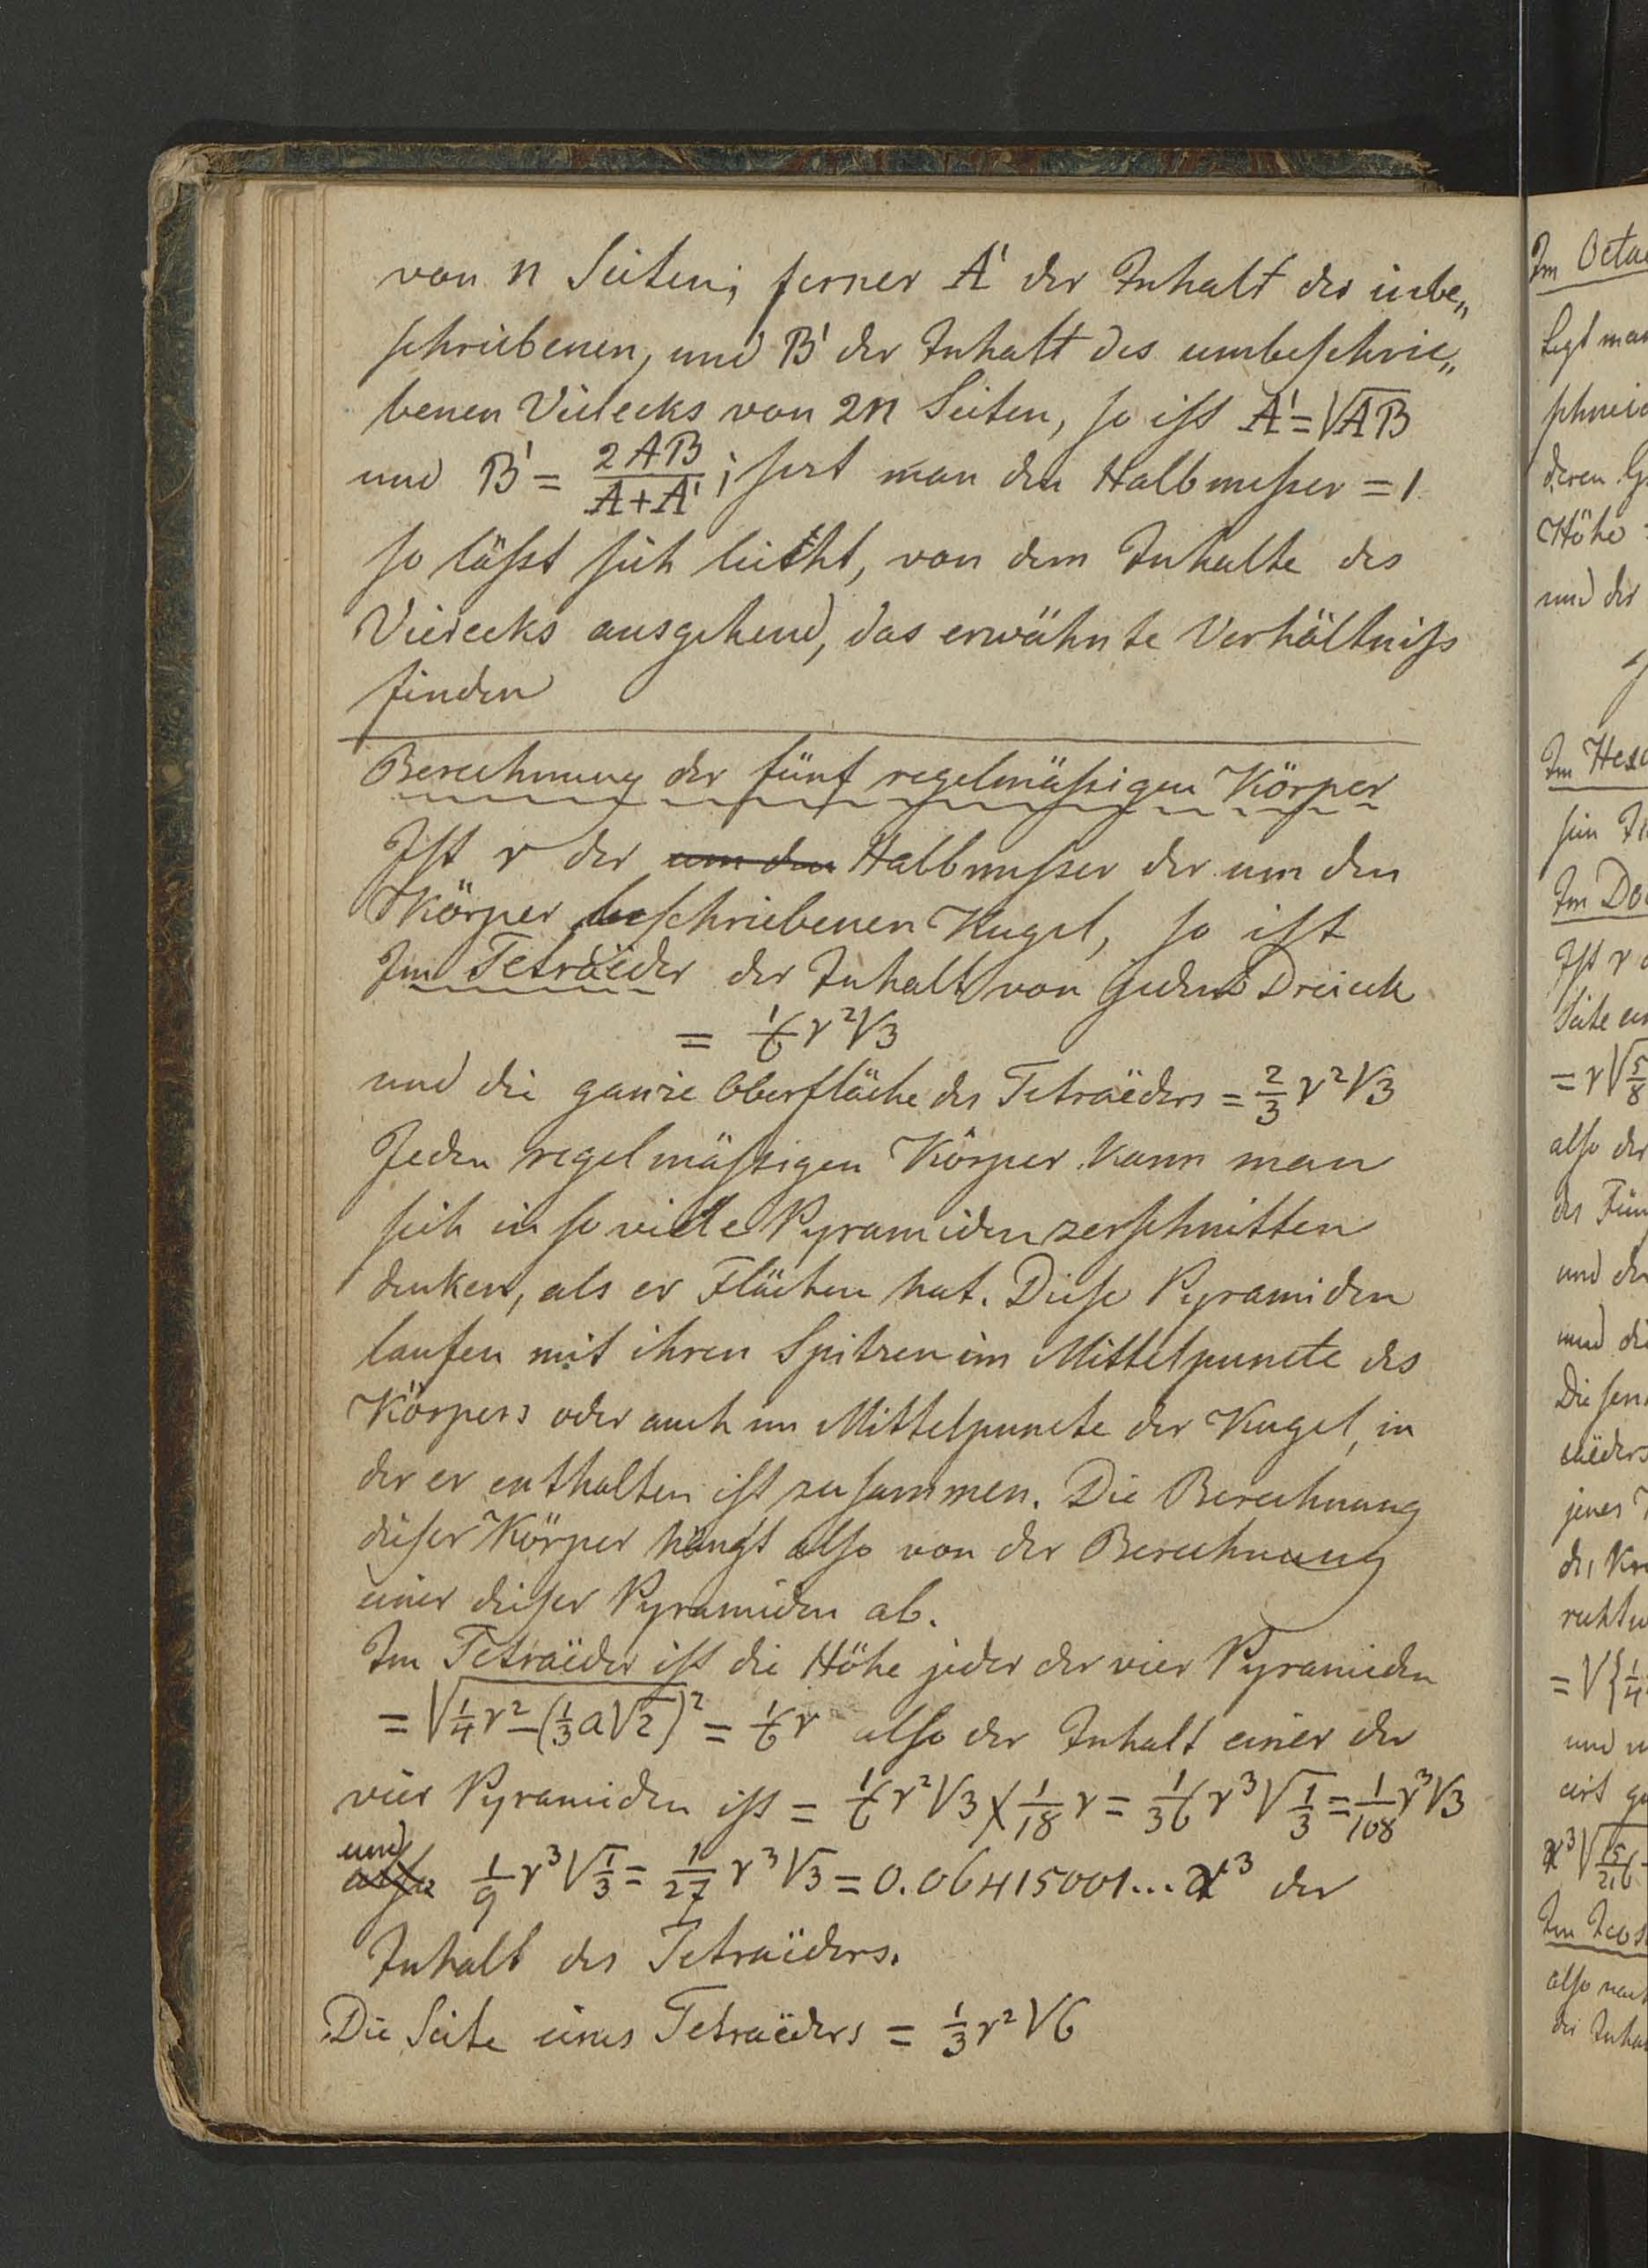 von n Seiten; ferner A' der Inhalt des inbe„
schriebenen, und B' der Inhalt des umbeschrie„
benen Vielecks von 2n Seiten, so ist A' = √AB
und B' = 2AB/(A+A'); sezt man den Halbmesser = 1
so läßt sich leicht, von dem Inhalte des
Vierecks ausgehend, das erwähnte Verhältniß
finden
Berechnung der fünf regelmäßigen Körper
Ist r der um den Halbmesser der um den
Körper beschriebenen Kugel, so ist
Im Tetraëder der Inhalt von jedem Dreieck
= 1/6 r²√3
und die ganze Oberfläche des Tetraëders = 2/3 r²√3
Jeden regelmäßigen Körper kann man
sich in so viele Pyramiden zerschnitten
denken, als er Flächen hat. Diese Pyramiden
laufen mit ihren Spitzen im Mittelpuncte des
Körpers oder auch im Mittelpuncte der Kugel, in
der er enthalten ist zusammen. Die Berechnung
dieser Körper hängt also von der Berechnung
einer dieser Pyramiden ab.
Im Tetraëder ist die Höhe jeder der vier Pyramiden
= √(1/4 r² – (1/3 a√2)²) = 1/6 r also der Inhalt einer der
vier Pyramiden ist = 1/6 r²√3 × 1/18 r = 1/36 r³√1/3 = 1/108 r³√3
und
also 1/9 r³√1/3 = 1/27 r³√3 = 0.06415001... r³ der
Inhalt des Tetraëders.
Die Seite eines Tetraëders = 1/3 r²√6
Im Octa
Legt man
schneid
deren G
Höhe
und der
Im Hexa
sein
Im Do
Ist r
Seite ein
= r√5/8
also der
des Fün
und der
und die
aëders
jenes
= √{1/4
und
Im Icos
also nach
der Inha